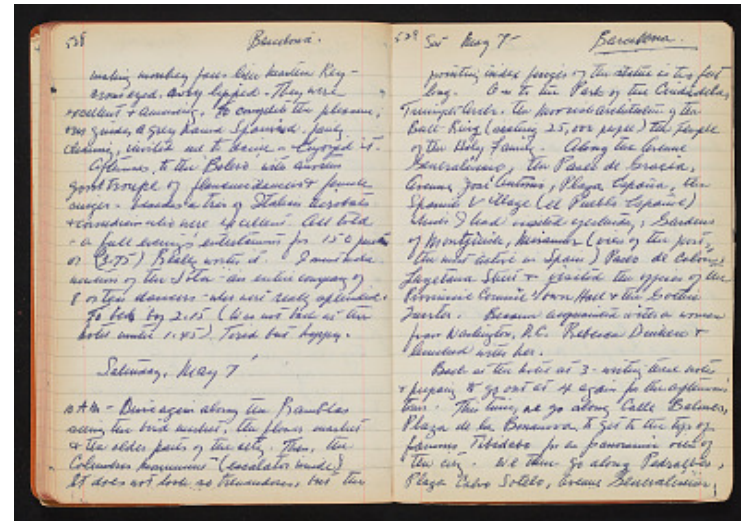 528 Barcelona.
making monkey faces like Martin Key-
cross eyed. They were
excellent & amusing. To complete the pleasure,
our guide, a grey haired Spaniard,
charming, invited me to dance - enjoyed it.
Afterwards, to the "Bolero" with another
good troupe of flamenco dancers & female
singer - besides a trio of Italian acrobats
& comedian who were excellent. All told
- a full evening's entertainment for 150
or (3.75) Really worth it. I must make
mention of the - an entire company of
8 or ten dancers - who were really splendid.
To bed by 2.15 (Was not back at the
hotel until 1.45). Tired but happy.
Saturday, May 7
10 A.M. - Drive again along the Ramblas
seeing the bird market, the flower market
& the older parts of the city. Then, the
Columbus monument - (escalator inside)
It does not look so tremendous, but the
529 Sat May 7 - Barcelona.
pointing index finger of the statue is two feet
long. On to the Park of the Ciudadela,
Triumph Arch, the Moorish architecture of the
Bull-Ring (seating 25,000 people) the Temple
of the Holy Family. Along the Avenue
Generalissimo, the Paseo de Gracia,
Avenue José Antonio, Plaza España, the
Spanish Village (el Pueblo Español)
which I had visited yesterday, Gardens
of Montjuich, Miramar (view of the port,
the most active in Spain) Paseo de Colon,
Layetana Street & visited the of the
Provincial Council Town Hall & the Gothic
Quarter. Became acquainted with a woman
from Washington, D.C. Rebecca &
lunched with her.
Back at the hotel at 3 - writing these notes
& preparing to go out at 4 again for the afternoon
tour. This time, we go along Calle Balmes,
Plaza de la Bonanova to get to the top of
famous Tibidabo for a panoramic view of
the city. We then go along Pedralbes,
Plaza Calvo Sotelo, Avenue Generalissimo,